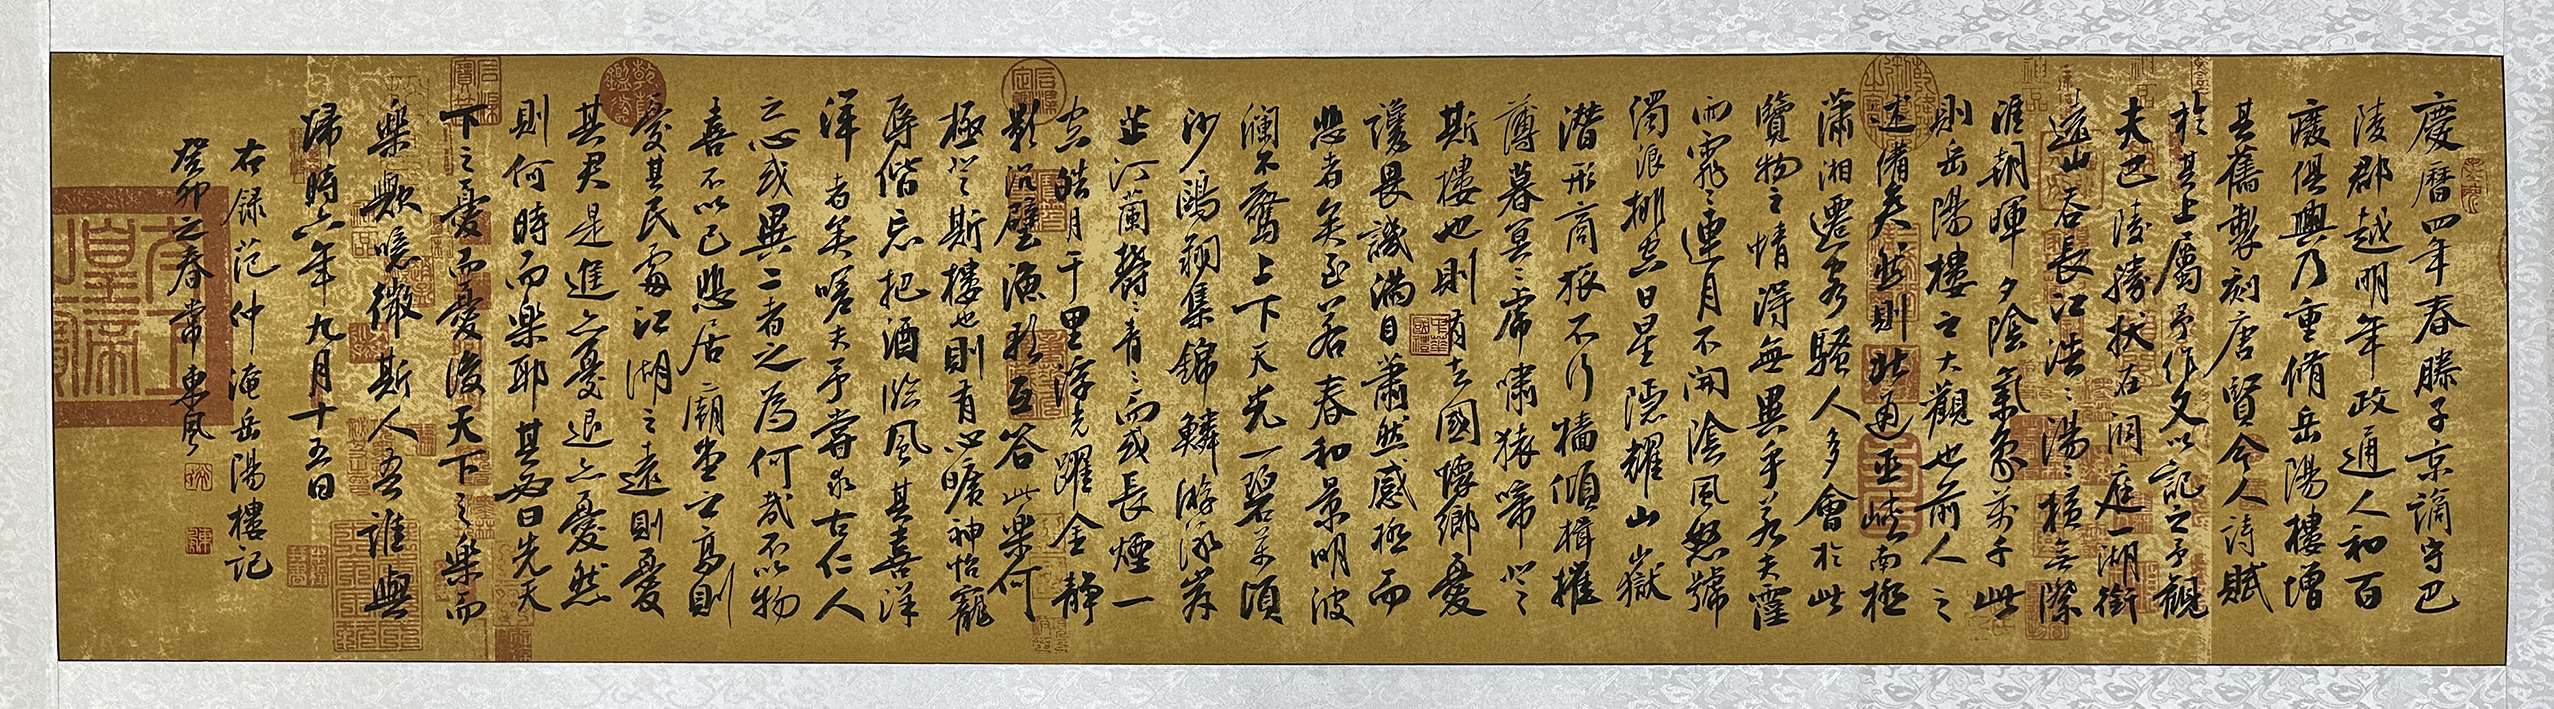 慶曆四年春滕子京謫守巴
陵郡越明年政通人和百
廢俱興乃重脩岳陽樓增
其舊製刻唐賢今人詩賦
於其上屬予作文以記之予觀
夫巴陵勝狀在洞庭一湖銜
遠山吞長江浩〻湯〻橫無際
涯朝暉夕陰氣象萬千此
則岳陽樓之大觀也前人之
述備矣然則北通巫峽南極
瀟湘遷客騷人多會於此
覽物之情得無異乎若夫霪
雨霏〻連月不開陰風怒號
濁浪排空日星隱耀山嶽
潛形商旅不行檣傾楫摧
薄暮冥〻虎嘯猿啼登
斯樓也則有去國懷鄉憂
讒畏譏滿目蕭然感極而
悲者矣至若春和景明波
瀾不驚上下天光一碧萬頃
沙鷗翔集錦鱗游泳岸
芷汀蘭鬱〻青〻而或長煙一
空皓月千里浮光躍金靜
影沉璧漁歌互答此樂何
極登斯樓也則有心曠神怡寵
辱偕忘把酒臨風其喜洋
洋者矣嗟夫予嘗求古仁人
之心或異二者之為何哉不以物
喜不以己悲居廟堂之高則
憂其民處江湖之遠則憂
其君是進亦憂退亦憂然
則何時而樂耶其必曰先天
下之憂而憂後天下之樂而
樂歟噫微斯人吾誰與
歸時六年九月十五日
右録范仲淹岳陽樓記
癸卯之春常東風